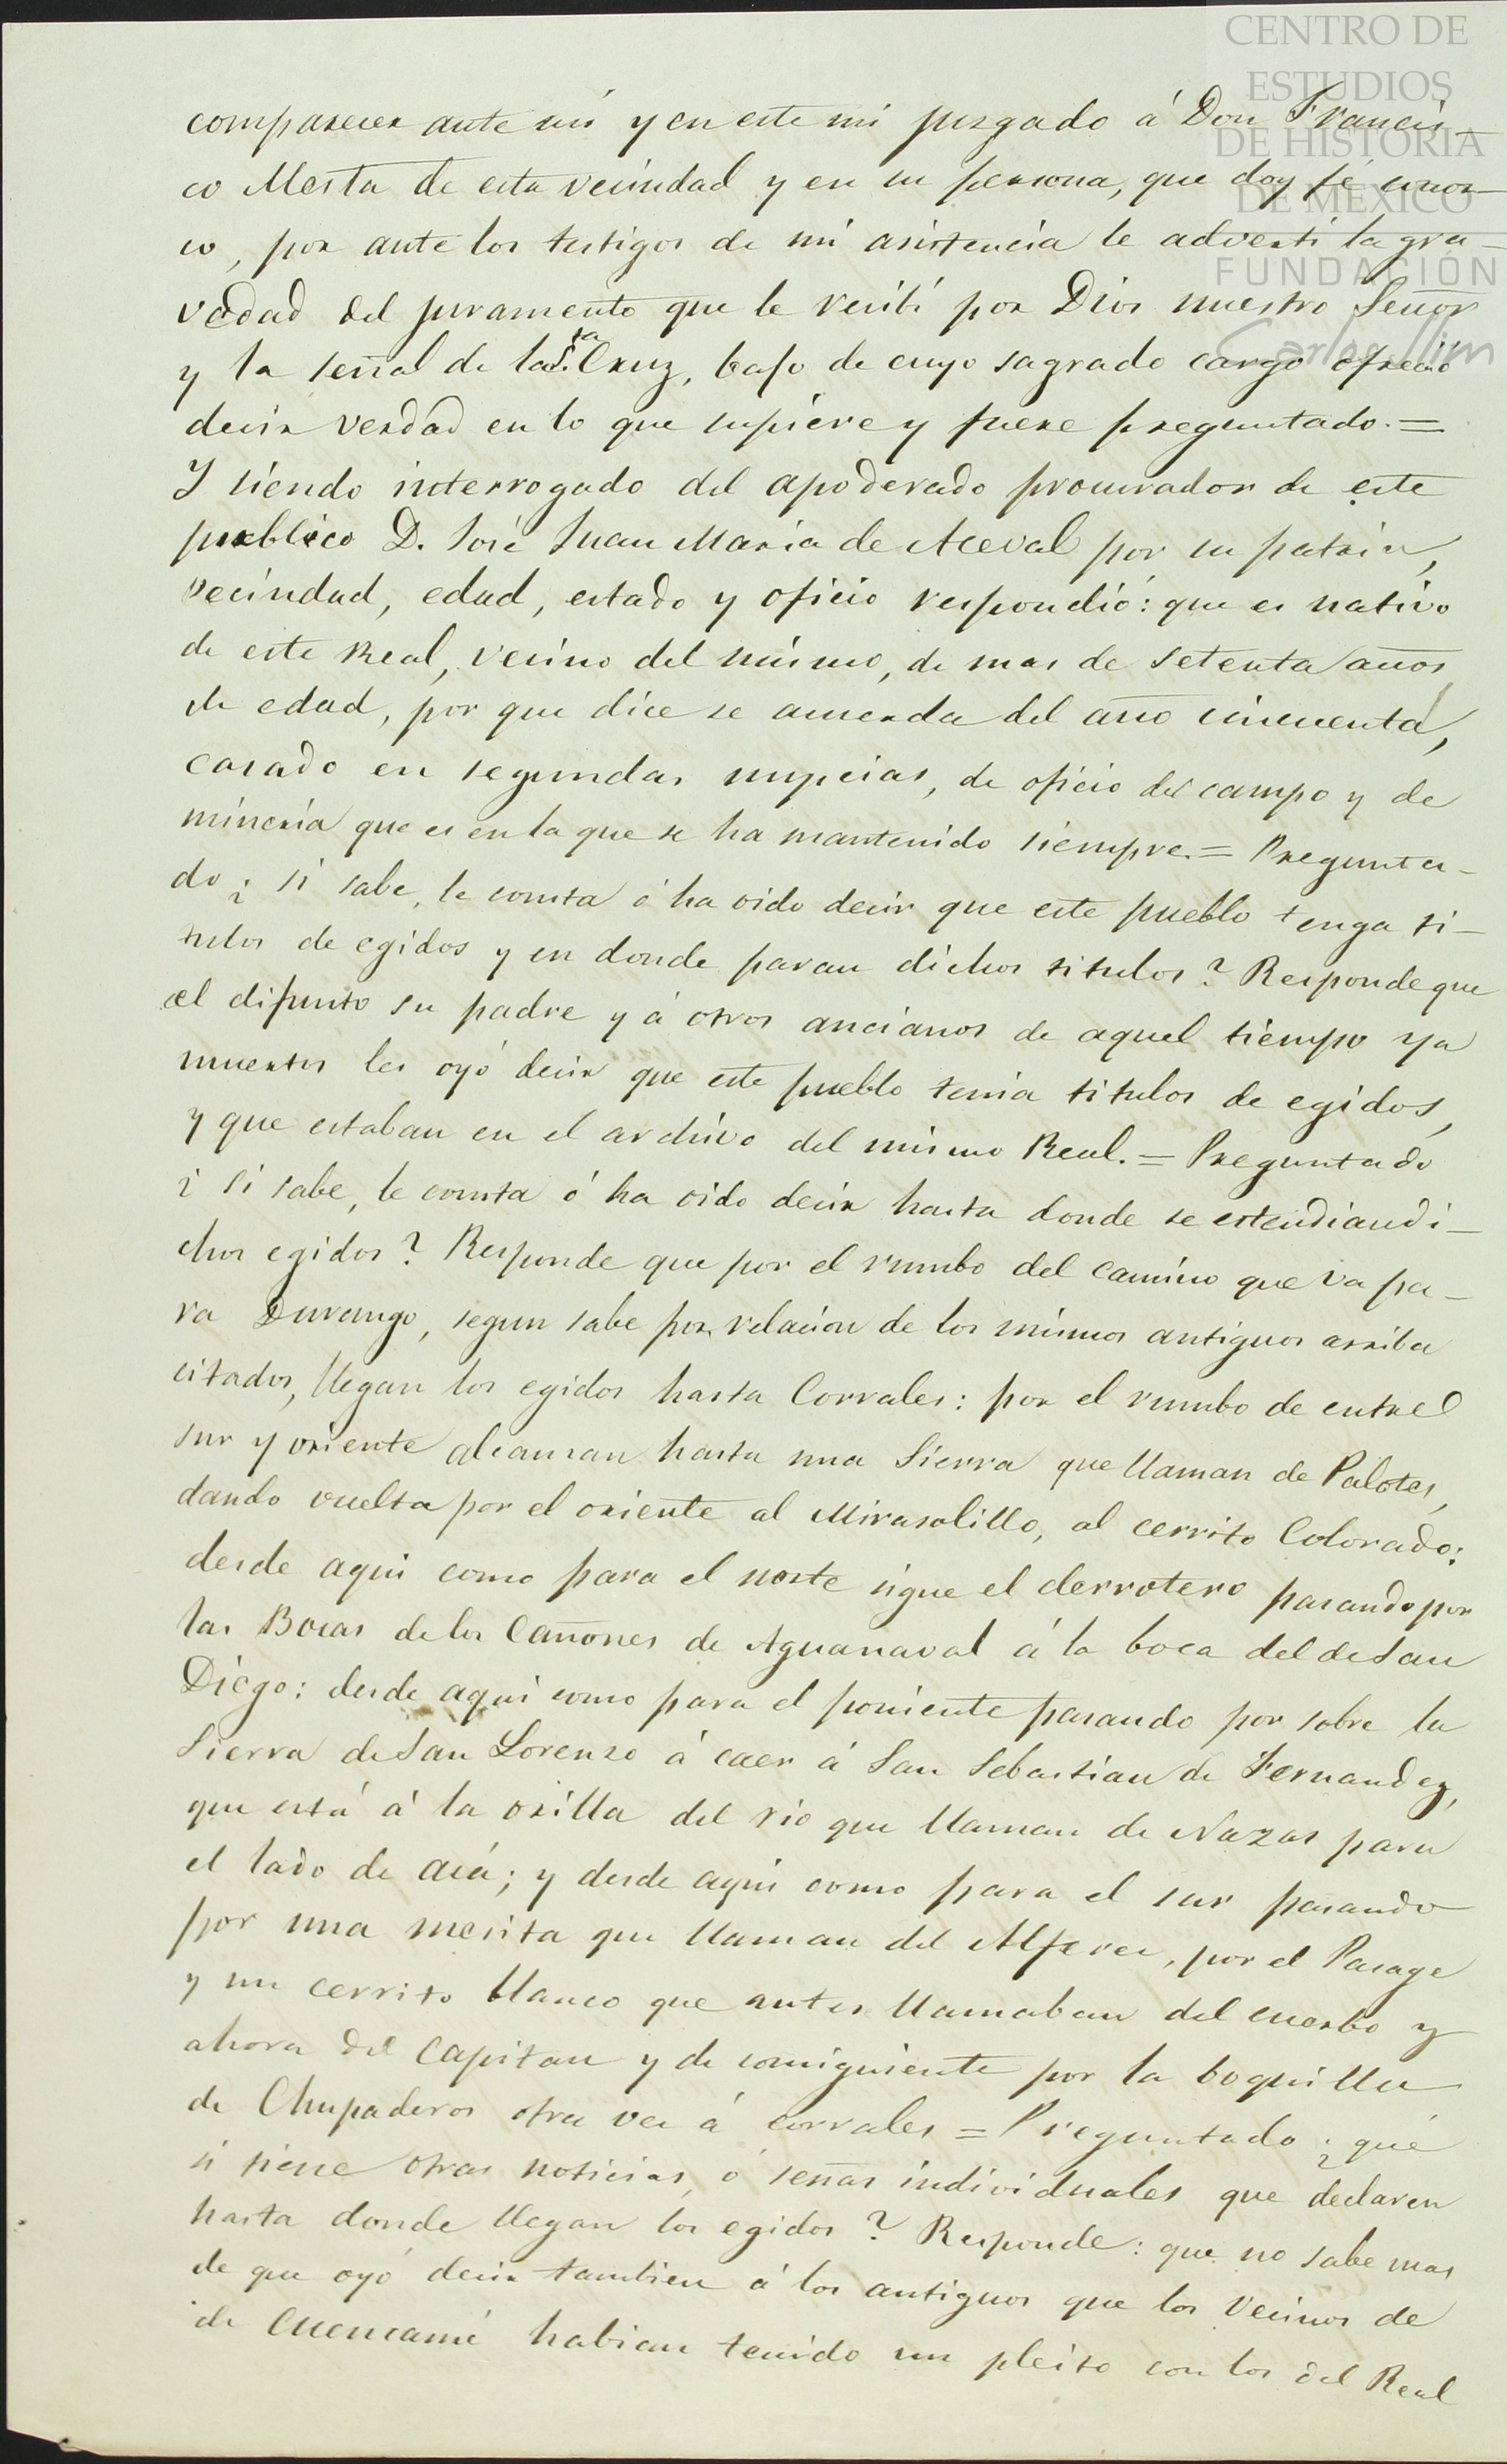 CENTRO DE
ESTUDIOS
DE HISTORIA
DE MÉXICO
FUNDACIÓN
Carlos Slim
comparecer ante mí y en este mi juzgado á Don Francis-
co Mesta de esta vecindad y en su persona, que doy fé conoz-
co, por ante los testigos de mi asistencia le advertí la gra-
vedad del juramento que le recibí por Dios nuestro Señor
y la señal de la Sta. Cruz, bajo de cuyo sagrado cargo ofreció
decir verdad en lo que supiere y fuere preguntado. =
Y siendo interrogado del apoderado procurador de este
publico D. José Juan Maria de Aceval por su patria,
vecindad, edad, estado y oficio respondió: que es nativo
de este Real, vecino del mismo, de mas de setenta años
de edad, por que dice se acuerda del año cincuenta,
casado en segundas nupcias, de oficio del campo y de
minería que es en la que se ha mantenido siempre. = Pregunta-
do ¿ si sabe, le consta ó ha oido decir que este pueblo tenga ti-
tulos de egidos y en donde paran dichos titulos? Responde que
el difunto su padre y á otros ancianos de aquel tiempo ya
muertos les oyó decir que este pueblo tenia titulos de egidos,
y que estaban en el archivo del mismo Real. = Preguntado
¿ si sabe, le consta ó ha oido decir hasta donde se estendian di-
chos egidos? Responde que por el rumbo del camino que va pa-
ra Durango, segun sabe por relacion de los mismos antiguos arriba
citados, llegan los egidos hasta Corrales: por el rumbo de entre el
sur y oriente alcanzan hasta una Sierra que llaman de Palotes,
dando vuelta por el oriente al Mirasolillo, al cerrito Colorado:
desde aqui como para el norte sigue el derrotero pasando por
las Bocas de los Cañones de Aguanaval á la boca del de San
Diego: desde aqui como para el poniente pasando por sobre la
Sierra de San Lorenzo á caer á San Sebastian de Fernandez,
que está á la orilla del rio que llaman de Nazas para
el lado de acá; y desde aqui como para el sur pasando
por una mesita que llaman del Alferez, por el Pasage
y un cerrito blanco que antes llamaban del cuerbo y
ahora del Capitan y de consiguiente por la boquilla
de Chupaderos otra vez á corrales = Preguntado ¿ qué
si tiene otras noticias, ó señas individuales que declaren
hasta donde llegan los egidos? Responde: que no sabe mas
de que oyó decir tambien á los antiguos que los vecinos de
de Cuencamé habian tenido un pleito con los del Real